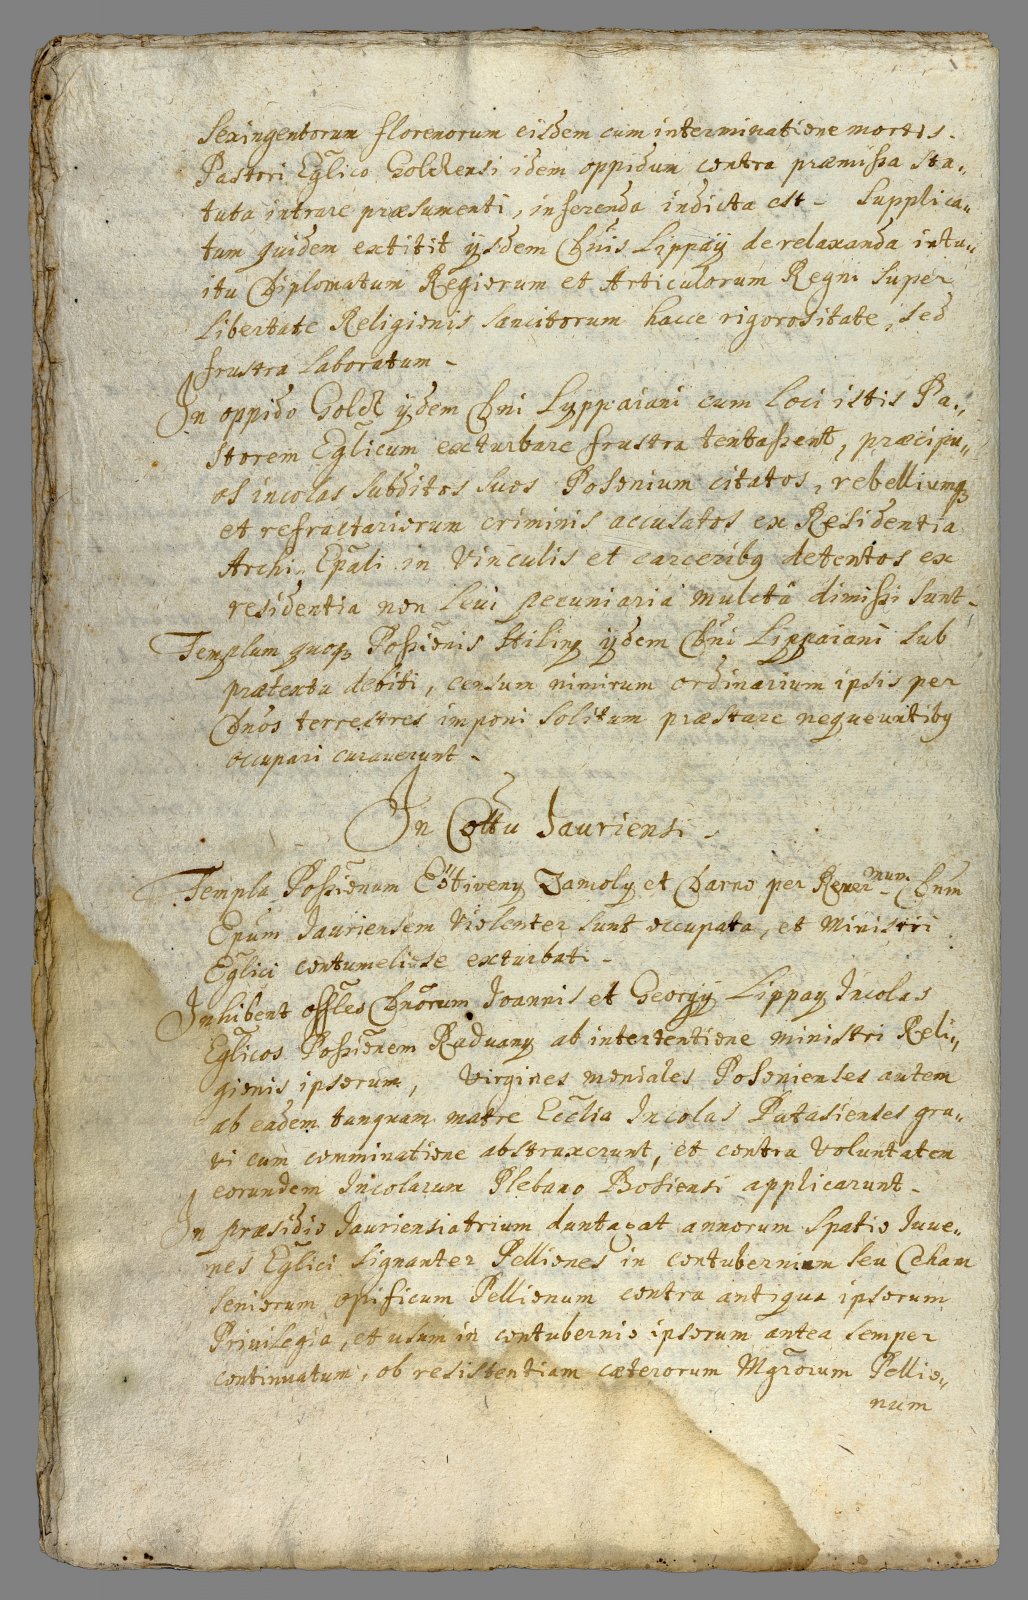 Sexingentorum florenorum eisdem cum interminatione mortis.
Pastori Eglico Goldensi idem oppidum contra præmissa sta„
tuta intrare præsumenti, inferenda indicta est – Supplica„
tum quidem extitit ÿsdem Dnis Lippaÿ de relaxanda intu„
itu Diplomatum Regiorum et Articulorum Regni super
Libertate Religionis sancitorum hacce rigorositate, sed
frustra laboratum –
In oppido Gold ÿdem Dni Lyppaiani cum Loci istis Pa„
storem Eglicum exturbare frustra tentassent, præcipu„
os incolas subditos suos Posonium citatos, rebelliumq3
et refractariorum criminis accusatos ex Residentia
Archi Epali in Vinculis et carceribq detentos ex
residentia non leui pecuniaria mulctâ dimissi sunt –
Templum quoq3 Possionis Stiling ÿdem Dni Lippaiani sub
prætextu debiti, censum nimirum ordinarium ipsis per
Dnos terrestres imponi solitum præstare nequeuntibq
occupari curauerunt –
In Cottu Jauriensi –
Templa Possionum Eötiveny Zamoly et Barno per Reuer num Dnm
Epum Jauriensem violenter sunt occupata, et Ministri
Eglici contumeliose exturbati –
Inhibent offles Dnorum Joannis et Georgÿ Lippay Incolas
Eglicos Possionem Raduany ab intertentione ministri Reli„
gionis ipsorum, Virgines moniales Posonienses autem
ab eadem tanquam matre Ecclia Incolas Patasienses gra„
vi cum comminatione abstraxerunt, et contra Voluntatem
eorundem Incolarum Plebano Bosiensi applicarunt –
In præsidio Jauriensi a trium duntaxat annorum spatio Iuue„
nes Eglici signanter Pelliones in contubernium seu Ceham
seniorum opificum Pellionum contra antiqua ipsorum
Priuilegia, et usum in contubernio ipsorum antea semper
continuatum, ob resistentiam cæterorum Mgrorum Pellio„
num